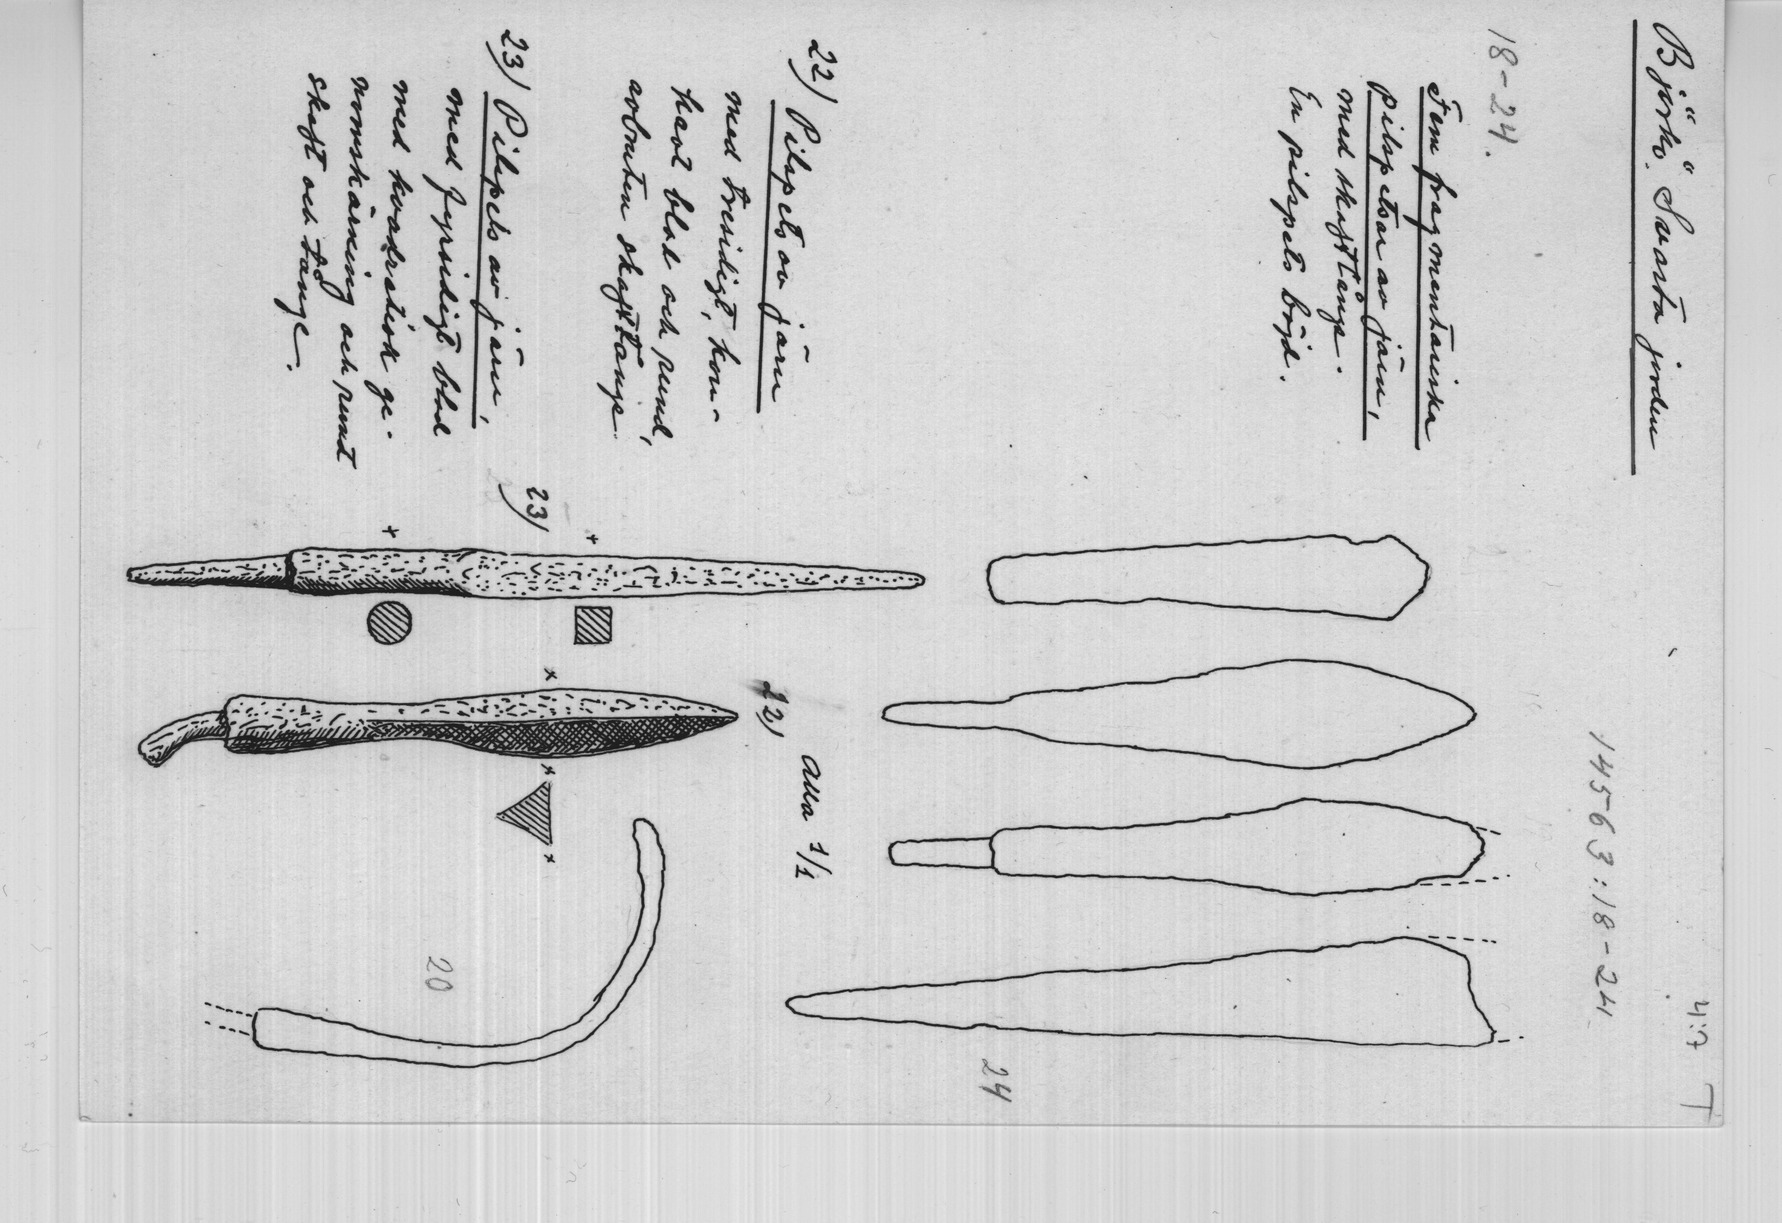 Björkö. Svarta jorden
4:7 T
14563:18-24
18-24.
Fem fragmentariska
pilspetsar av järn,
med skafttånge.
En pilspets böjd.
22) Pilspets av järn
med tresidigt, kon-
kavt blad och rund,
avbruten skafttånge
23) Pilspets av järn,
med fyrsidigt blad
med kvadratisk ge-
nomskärning och runt
skaft och tånge.
alla 1/1
24
22)
23)
20